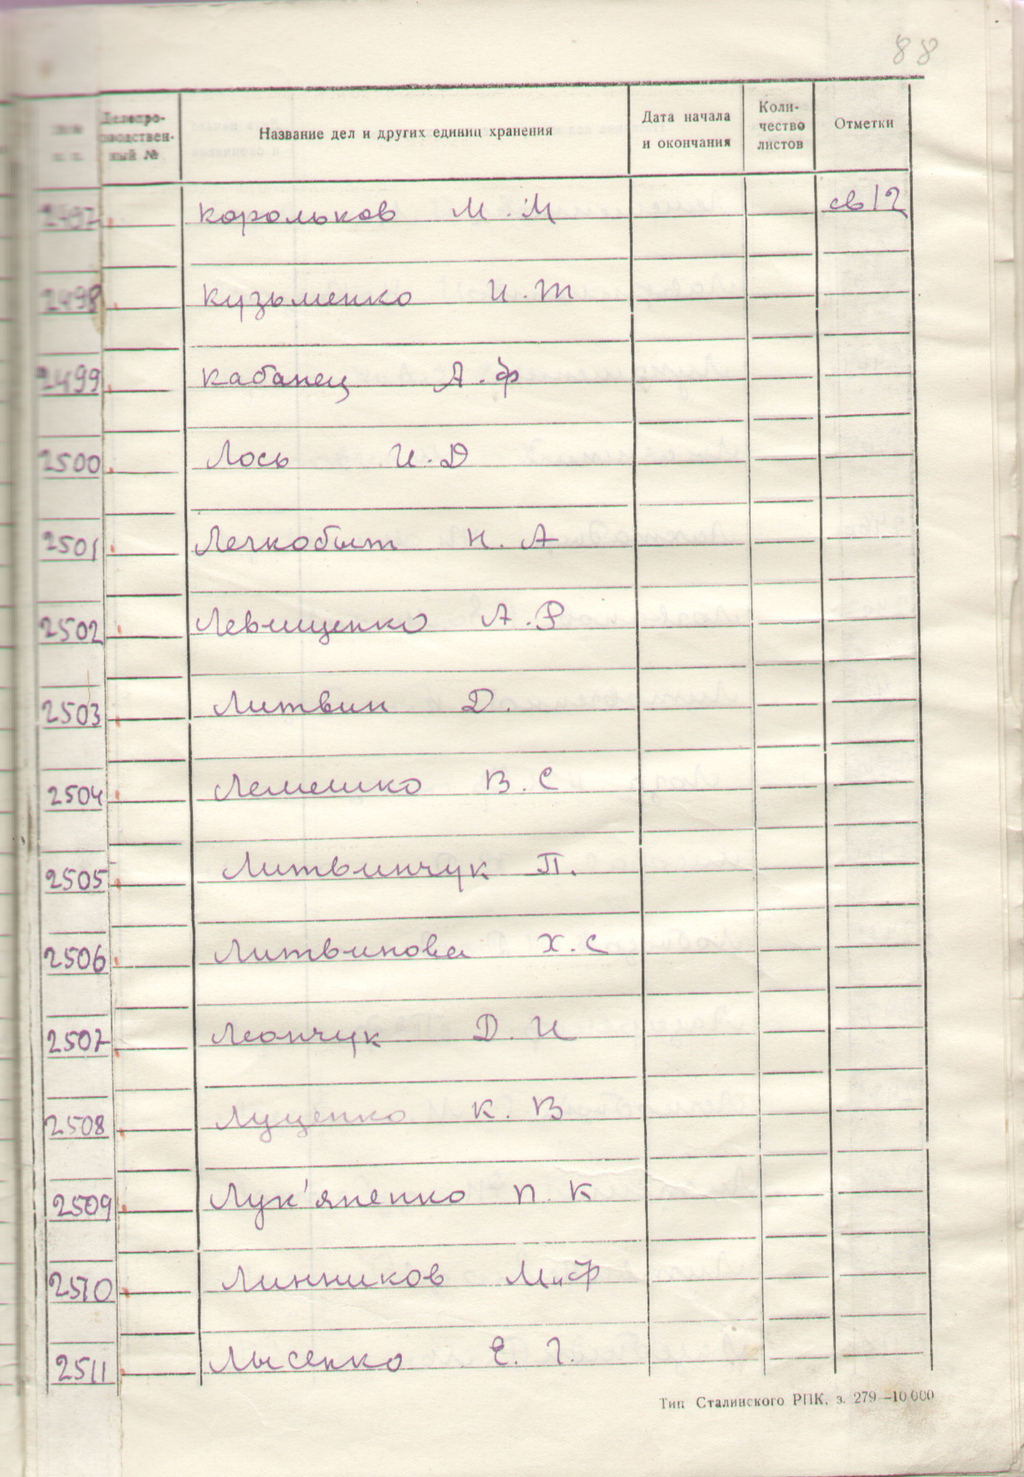 88
Делопроизводственный №
Название дел и других единиц хранения
Дата начала и окончания
Количество листов
Отметки
2497 Корольков М. М св 12
2498 Кузьменко И. Т
2499 Кабанец А. Ф
2500 Лось И. Д
2501 Легкобыт Н. А
2502 Левищенко А. Р
2503 Литвин Д.
2504 Лемешко В. С
2505 Литвинчук П.
2506 Литвинова Х. С
2507 Леончук Д. И
2508 Луценко К. В
2509 Лук'яненко П. К
2510 Линников М. Ф
2511 Лысенко Е. Г.
Тип Сталинского РПК, з. 279—10 000